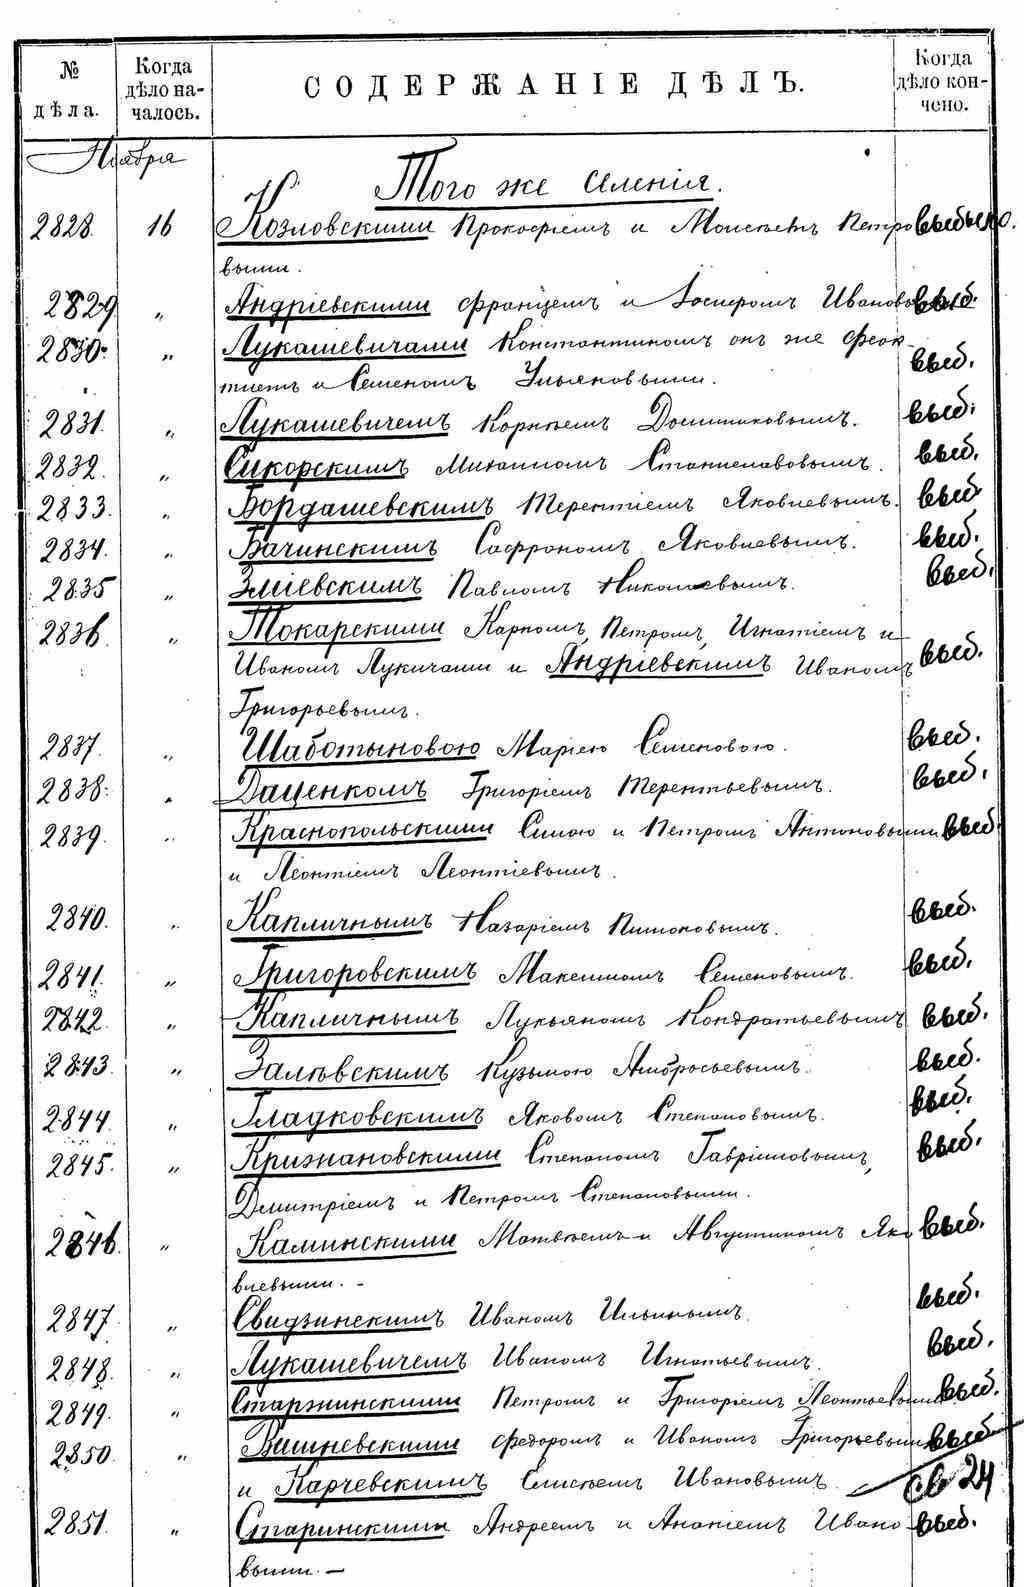 №
дѣла.
Когда
дѣло на-
чалось.
СОДЕРЖАНІЕ ДѢЛЪ.
Когда
дѣло кон-
чено.
Ноября
Того же селенія.
2828. 16 Козловскими Прокофіемъ и Моисѣемъ Петро выбыло.
выми.
2829 „ Андріевскими Францемъ и Іосифомъ Ивановыми выб.
2830. „ Лукашевичами Константиномъ онъ же Феок- выб.
тистъ и Семеномъ Ульяновыми.
2831. „ Лукашевичемъ Корнѣемъ Доминиковымъ. выб.
2832. „ Сикорскимъ Михаиломъ Станиславовымъ. выб.
2833. „ Бордашевскимъ Терентіемъ Яковлевымъ. выб.
2834. „ Бачинскимъ Софрономъ Яковлевымъ. выб.
2835 „ Зміевскимъ Павломъ Николаевымъ. выб.
2836 „ Токарскими Карпомъ, Петромъ, Игнатіемъ и
Иваномъ Лукичами и Андріевскимъ Иваномъ выб.
Григорьевымъ.
2837. „ Шаботыновою Маріею Семеновою. выб.
2838. „ Даценкомъ Григоріемъ Терентьевымъ. выб.
2839. „ Краснопольскими Силою и Петромъ Антоновыми выб.
и Леонтіемъ Леонтіевымъ.
2840. „ Капличнымъ Назаріемъ выб.
2841. „ Григоровскимъ Максимомъ Семеновымъ. выб.
2842. „ Капличнымъ Лукьяномъ Кондратьевымъ выб.
2843. „ Залѣвскимъ Кузьмою Амбросьевымъ. выб.
2844. „ Гладковскимъ Яковомъ Степановымъ. выб.
2845. „ Крижановскими Степаномъ Гавриловымъ, выб.
Дмитріемъ и Петромъ Степановыми.
2846. „ Каминскими Матвѣемъ и Августиномъ Яко выб.
влевыми. -
2847. „ Свидзинскимъ Иваномъ Ильинымъ. выб.
2848. „ Лукашевичемъ Иваномъ Игнатьевымъ. выб.
2849. „ Старжинскими Петромъ и Григоріемъ Леонтьевыми выб.
2850. „ Вишневскими Федоромъ и Иваномъ Григорьевыми выб
и Карчевскимъ Елисѣемъ Ивановымъ. св 24
2851. „ Старинскими Андреемъ и Ананіемъ Ивано- выб.
выми. —